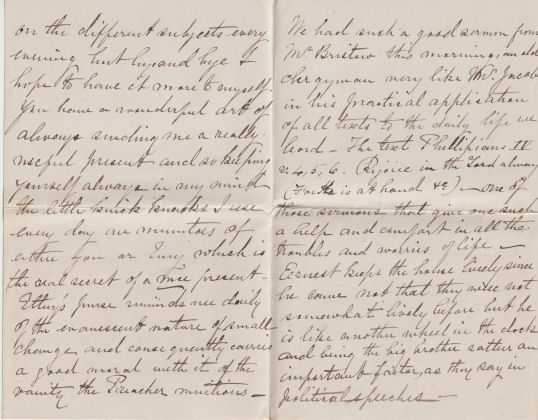 on the different subjects every
evening, but by and bye I
hope to have it more to myself.
You have a wonderful art of
always sending me a really
useful present and so keeping
yourself always in my mind
the little knick knacks I use
every day are minutors of
either you or Emy which is
the real secret of a nice present
Etty's purse reminds me daily
of the evanescent nature of small
change and consequently carries
a good moral with it of the
vanity the Preacher mentions —
We had such a good sermon from
Mr. Bristow this morning, an old
clergyman very like Mr. Jacob
in his practical application
of all texts to the daily life we
lead — The text Phillipians IV
v. 4, 5, 6. Rejoice in the Lord always
(For the is at hand &c) — one of
those sermons that give one such
a help and comfort in all the
troubles and worries of life —
Earnest keeps the house lively since
he came not that they were not
somewhat lively before but he
is like another wheel in the clock
and being the big brother rather an
important factor, as they say in
political speeches —